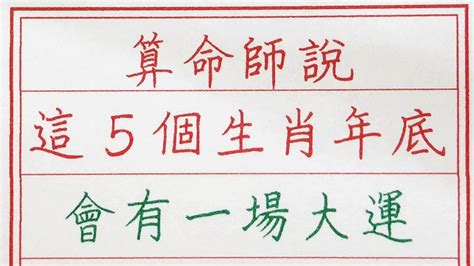 算命師說
這5個生肖年底
會有一場大運